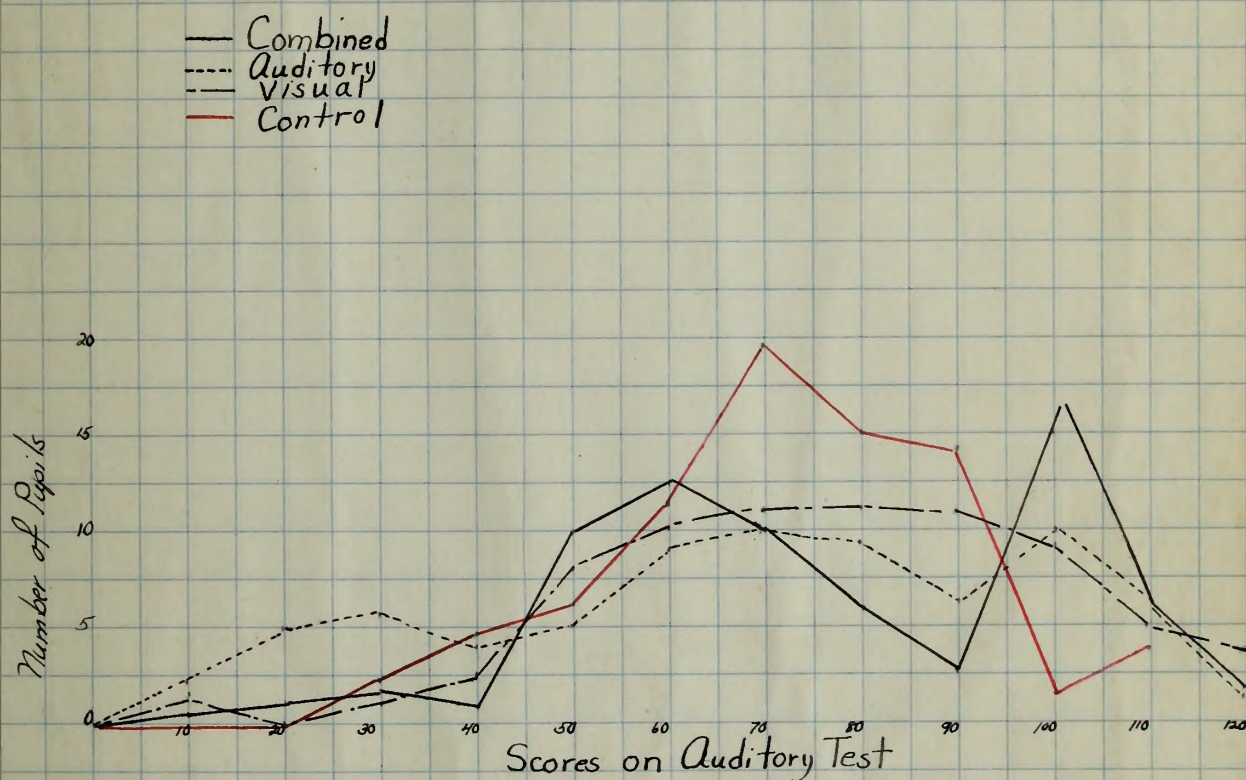 Combined
Auditory
Visual
Control
20
15
10
5
0
Number of Pupils
10 20 30 40 50 60 70 80 90 100 110 120
Scores on Auditory Test